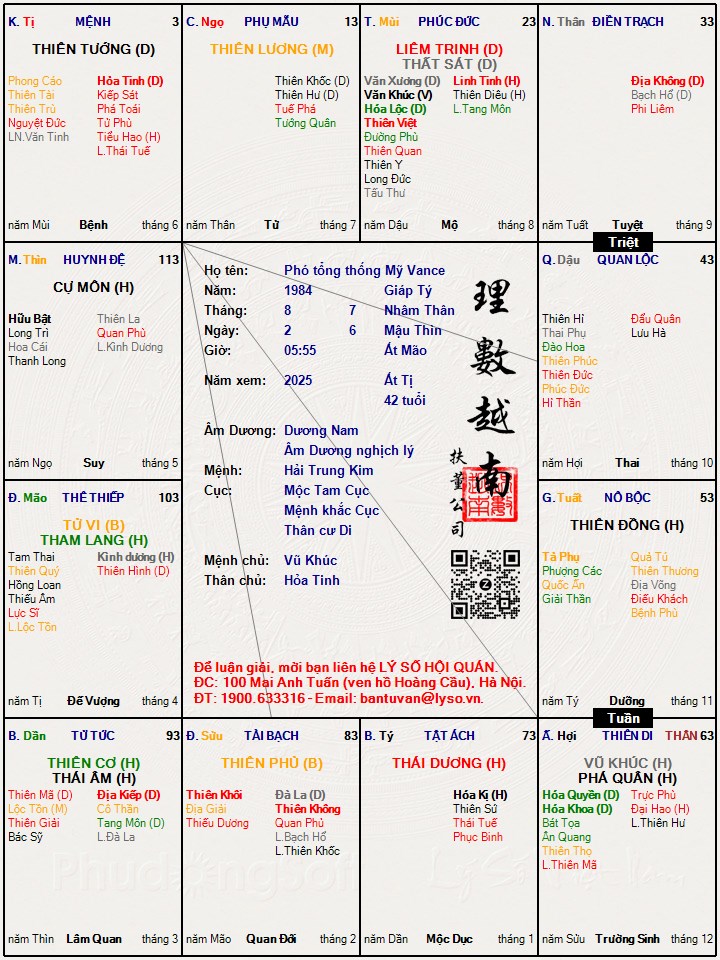 K. Tị MỆNH 3
THIÊN TƯỚNG (D)
Phong Cáo Hỏa Tinh (D)
Thiên Tài Kiếp Sát
Thiên Trù Phá Toái
Nguyệt Đức Tử Phù
LN.Văn Tinh Tiểu Hao (H)
L.Thái Tuế
năm Mùi Bệnh tháng 6
C. Ngọ PHỤ MẪU 13
THIÊN LƯƠNG (M)
Thiên Khốc (D)
Thiên Hư (D)
Tuế Phá
Tướng Quân
năm Thân Tử tháng 7
T. Mùi PHÚC ĐỨC 23
LIÊM TRINH (D)
THẤT SÁT (D)
Văn Xương (D) Linh Tinh (H)
Văn Khúc (V) Thiên Diêu (H)
Hóa Lộc (D) L.Tang Môn
Thiên Việt
Đường Phù
Thiên Quan
Thiên Y
Long Đức
Tấu Thư
năm Dậu Mộ tháng 8
N. Thân ĐIỀN TRẠCH 33
Địa Không (D)
Bạch Hổ (D)
Phi Liêm
năm Tuất Tuyệt tháng 9
Triệt
M. Thìn HUYNH ĐỆ 113
CỰ MÔN (H)
Hữu Bật Thiên La
Long Trì Quan Phù
Hoa Cái L.Kình Dương
Thanh Long
năm Ngọ Suy tháng 5
Họ tên: Phó tổng thống Mỹ Vance
Năm: 1984 Giáp Tý
Tháng: 8 7 Nhâm Thân
Ngày: 2 6 Mậu Thìn
Giờ: 05:55 Ất Mão
Năm xem: 2025 Ất Tị
42 tuổi
Âm Dương: Dương Nam
Âm Dương nghịch lý
Mệnh: Hải Trung Kim
Cục: Mộc Tam Cục
Mệnh khắc Cục
Thân cư Di
Mệnh chủ: Vũ Khúc
Thân chủ: Hỏa Tinh
理數越南
扶董公司
Để luận giải, mời bạn liên hệ LÝ SỐ HỘI QUÁN.
ĐC: 100 Mai Anh Tuấn (ven hồ Hoàng Cầu), Hà Nội.
ĐT: 1900.633316 - Email: bantuvan@lyso.vn.
Q. Dậu QUAN LỘC 43
Thiên Hỉ Đẩu Quân
Thai Phụ Lưu Hà
Đào Hoa
Thiên Phúc
Thiên Đức
Phúc Đức
Hỉ Thần
năm Hợi Thai tháng 10
Đ. Mão THÊ THIẾP 103
TỬ VI (B)
THAM LANG (H)
Tam Thai Kình dương (H)
Thiên Quý Thiên Hình (D)
Hồng Loan
Thiếu Âm
Lực Sĩ
L.Lộc Tồn
năm Tị Đế Vượng tháng 4
G. Tuất NÔ BỘC 53
THIÊN ĐỒNG (H)
Tả Phụ Quả Tú
Phượng Các Thiên Thương
Quốc Ấn Địa Võng
Giải Thần Điếu Khách
Bệnh Phù
năm Tý Dưỡng tháng 11
Tuần
B. Dần TỬ TỨC 93
THIÊN CƠ (H)
THÁI ÂM (H)
Thiên Mã (D) Địa Kiếp (D)
Lộc Tồn (M) Cô Thần
Thiên Giải Tang Môn (D)
Bác Sỹ L.Đà La
năm Thìn Lâm Quan tháng 3
Đ. Sửu TÀI BẠCH 83
THIÊN PHỦ (B)
Thiên Khôi Đà La (D)
Địa Giải Thiên Không
Thiếu Dương Quan Phủ
L.Bạch Hổ
L.Thiên Khốc
năm Mão Quan Đới tháng 2
B. Tý TẬT ÁCH 73
THÁI DƯƠNG (H)
Hóa Kị (H)
Thiên Sứ
Thái Tuế
Phục Binh
năm Dần Mộc Dục tháng 1
Ấ. Hợi THIÊN DI THÂN 63
VŨ KHÚC (H)
PHÁ QUÂN (H)
Hóa Quyền (D) Trực Phù
Hóa Khoa (D) Đại Hao (H)
Bát Tọa L.Thiên Hư
Ân Quang
Thiên Thọ
L.Thiên Mã
năm Sửu Trường Sinh tháng 12